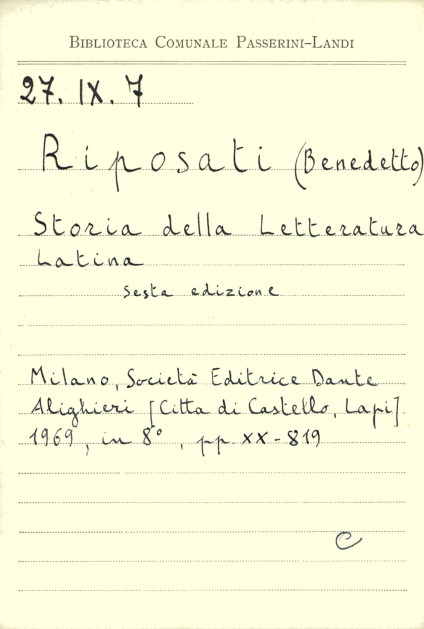 BIBLIOTECA COMUNALE PASSERINI-LANDI
27. IX. 7
Riposati (Benedetto)
Storia della Letteratura
Latina
Sesta edizione
Milano, Società Editrice Dante
Alighieri [Citta di Castello, Lapi]
1969, in 8°, pp. XX-819
C